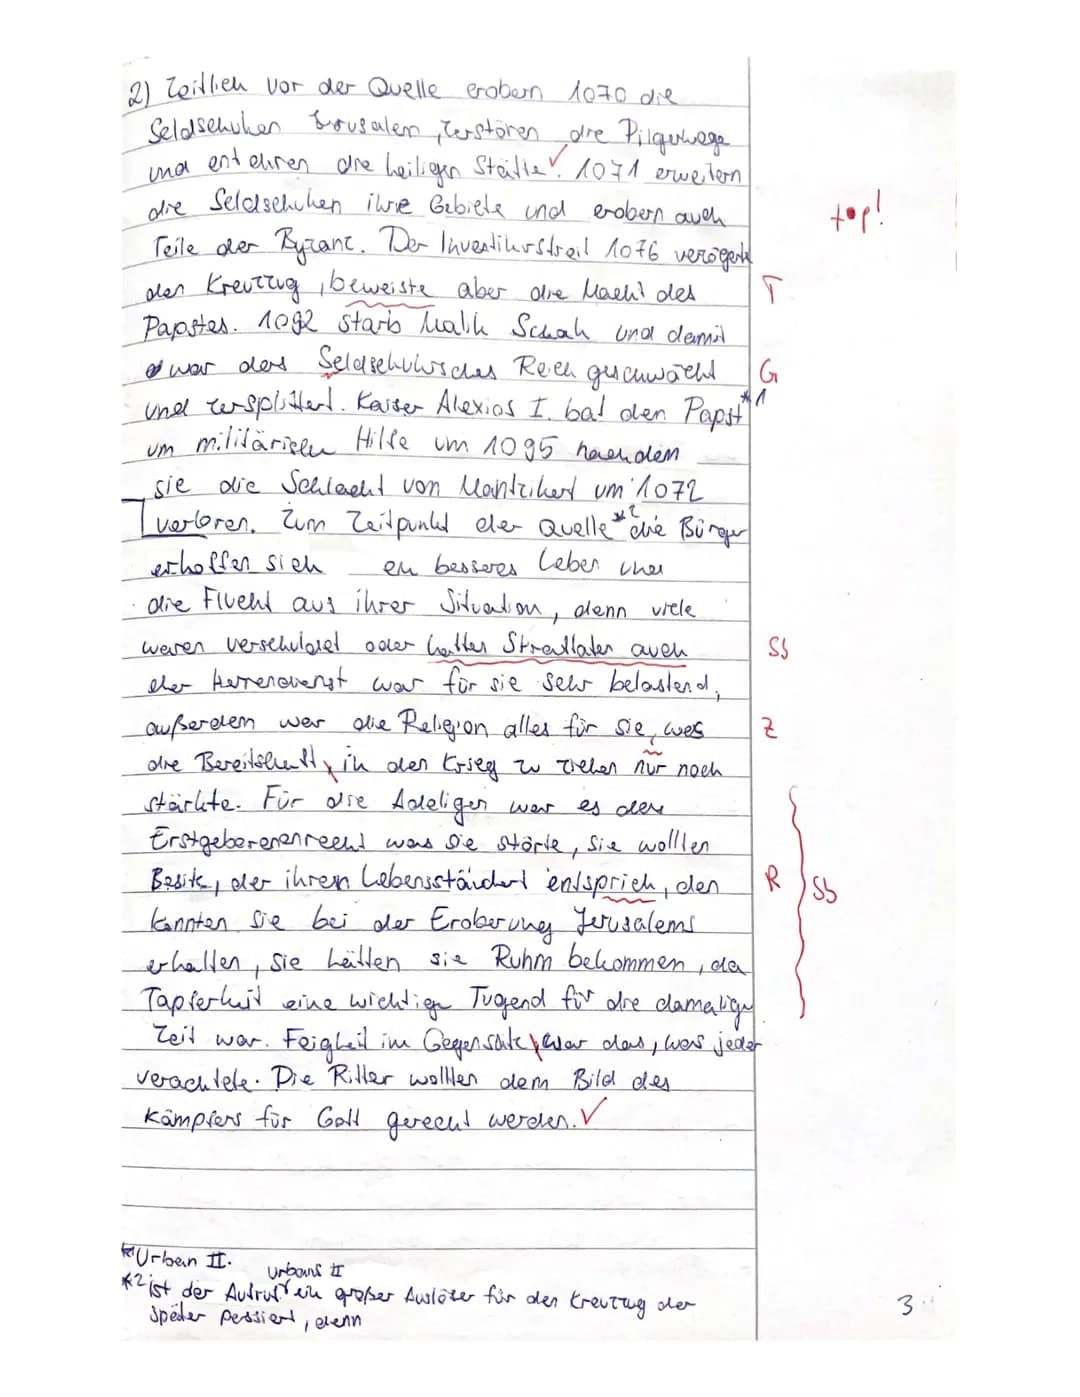 2) Zeitlich vor der Quelle erobern 1070 die
Seldschuken Jerusalem, zerstören die Pilgerwege
und entehren die heiligen Stätte. 1071 erweitern
die Seldschuken ihre Gebiete und erobern auch
top!
Teile der Byzanc. Der Investiturstreit 1076 verzögerte
den Kreuzzug, beweiste aber die Macht des T
Papstes. 1092 starb Malik Schah und damit
war das Seldschukisches Reich geschwächt G
und zersplittert. Kaiser Alexios I. bat den Papst *1
um militärischen Hilfe um 1095 nachdem
sie die Schlacht von Mantzikert um 1072
verloren. Zum Zeitpunkt der Quelle *2 die Bürger
erhoffen sich ein besseres Leben und
die Flucht aus ihrer Situation, denn viele
waren verschuldet oder hatten Straftaten auch Sb
der Herrendienst war für sie sehr belastend,
außerdem war die Religion alles für sie, was Z
die Bereitschaft, in den Krieg zu ziehen nur noch
stärkte. Für die Adeligen war es das
Erstgeborenenrecht was sie störte, sie wollten
Besitz, der ihrem Lebensständart entsprich, den R Sb
konnten sie bei der Eroberung Jerusalems
erhalten, sie hätten sie Ruhm bekommen, da
Tapferkeit eine wichtige Tugend für die damalige
Zeit war. Feigheit im Gegensatz, war das, was jeder
verachtete. Die Ritter wollten dem Bild des
Kämpfers für Gott gerecht werden.
*1 Urban II.
Urbans II
*2 ist der Aufruf ein großer Auslöser für den Kreuzzug der
später passiert, denn
3